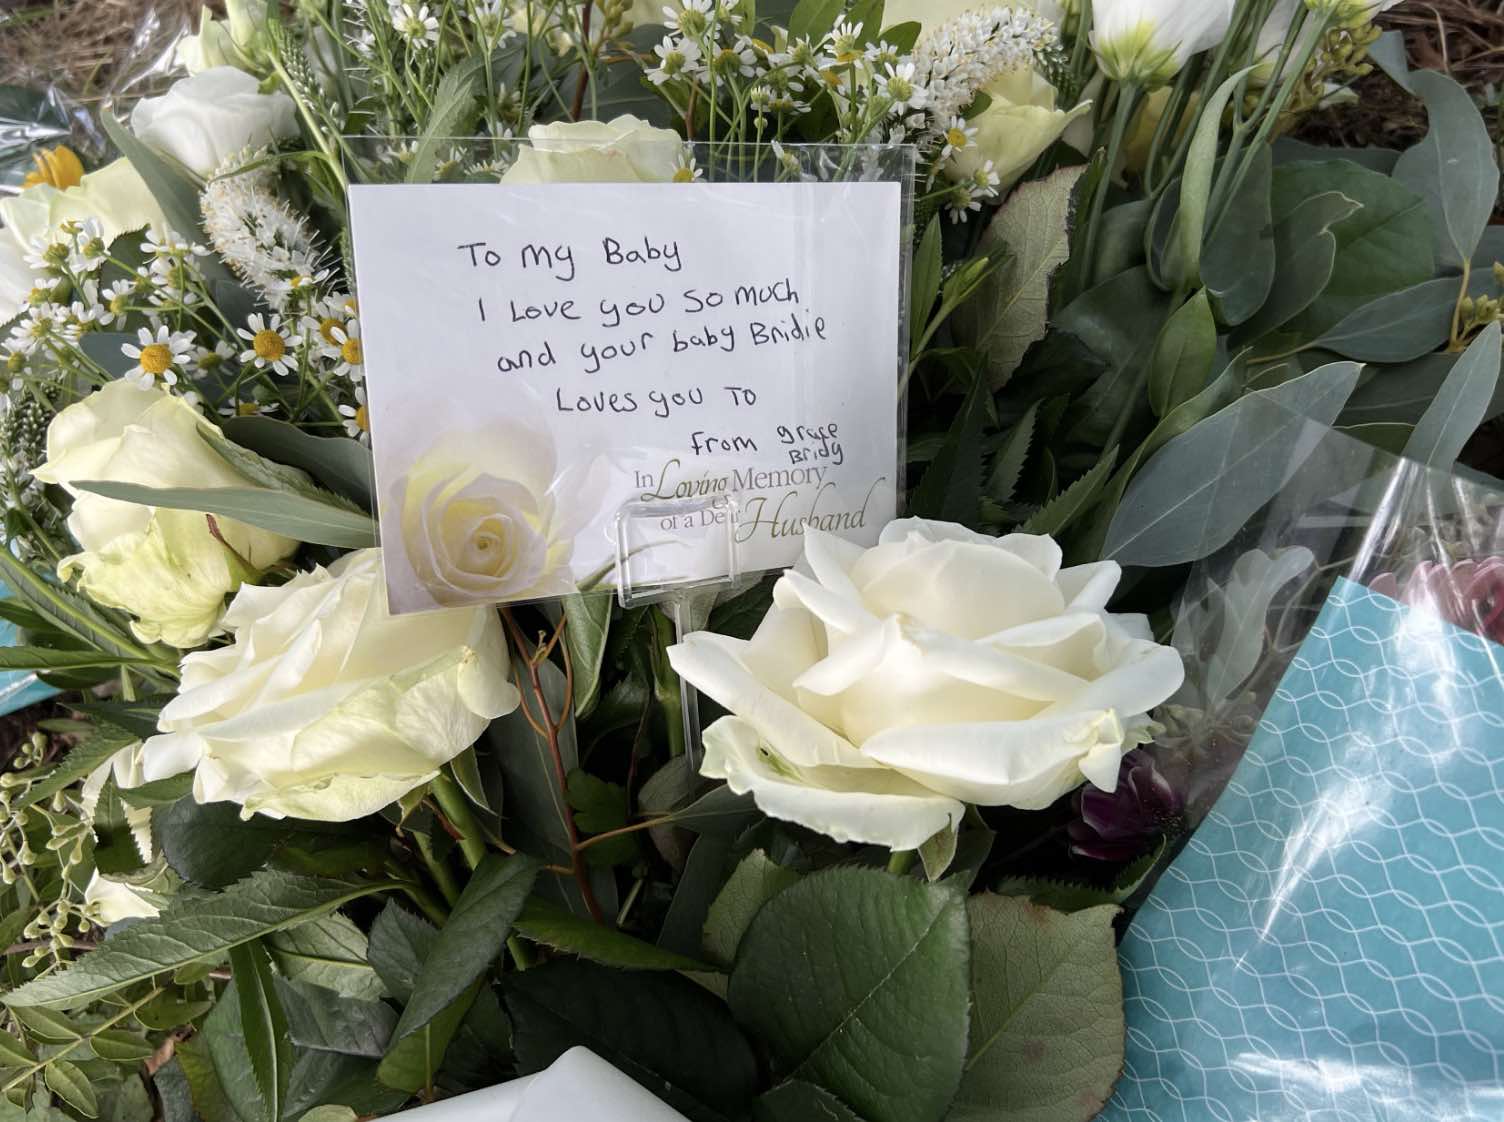 To My Baby
I Love you so much
and your baby Bridie
Loves you To
from grace
Bridy
In Loving Memory
of a Dear Husband